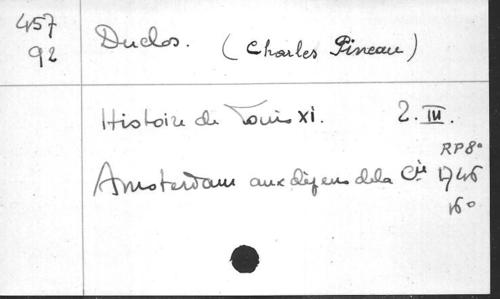 457
92
Duclos. (Charles Pineau)
Histoire de Louis XI. 2. III.
RP8°
Amsterdam aux dépens de la Cie 1746
16°